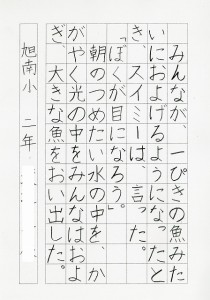 みんなが、一ぴきの魚みた
いにおよげるようになったと
き、スイミーは、言った。
「ぼくが目になろう。」
朝のつめたい水の中を、か
がやく光の中をみんなはおよ
ぎ、大きな魚をおい出した。
旭南小 二年